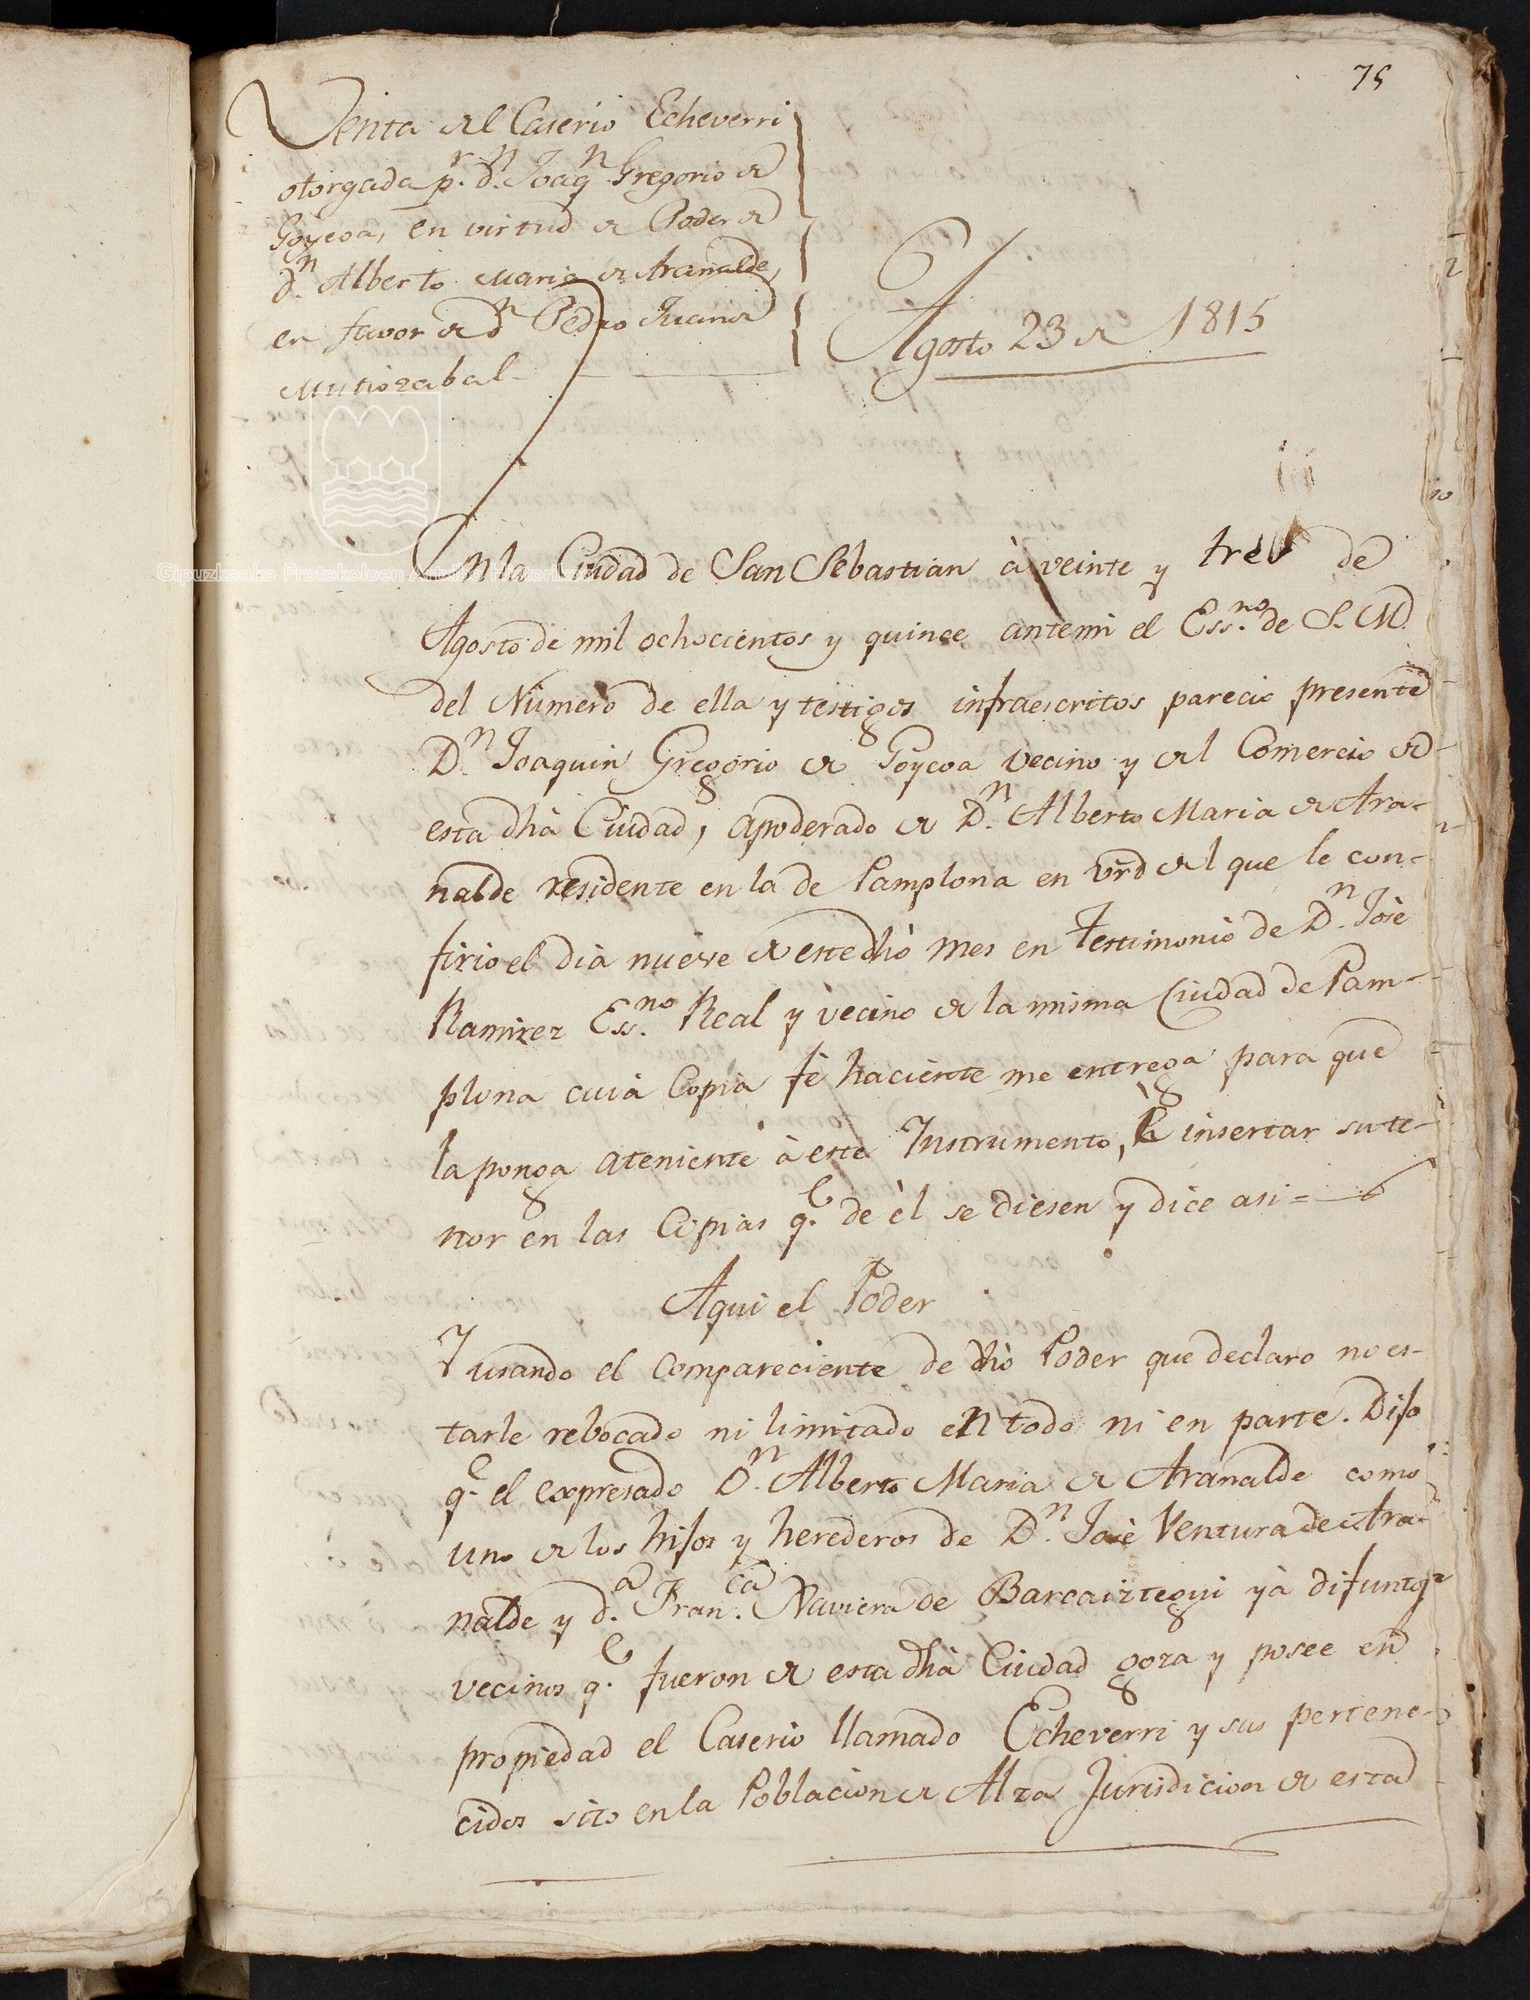 75
Venta del Caserio Echeverri
otorgada pr. dn. Joaqn. Gregorio de
Goycoa, en virtud de Poder de
dn. Alberto Maria de Aranalde,
en favor de dn Pedro Juan de
Mutiozabal
Agosto 23 de 1815
En la Ciudad de San Sebastian à veinte y tres de
Agosto de mil ochocientos y quince antemi el Essno. de S. M.
del Número de ella y testigos infraescritos parecio presente
Dn. Joaquin Gregorio de Goycoa vecino y del Comercio de
esta dhà Ciudad, apoderado de Dn. Alberto Maria de Ara-
nalde residente en la de Pamplona en vrd del que le con-
firio el dià nueve de este dhò mes en testimonio de Dn. Josè
Ramirez Essno. Real y vecino de la misma Ciudad de Pam-
plona cuià Copia fè haciente me entrega para que
la ponga ateniente à este Instrumento, è insertar su te-
nor en las Copias qe. de èl se diesen y dice asi =
Aqui el Poder
Y usando el compareciente de dhò Poder que declaro no es-
tarle rebocado ni limitado en todo ni en parte. Dijo
qe. el expresado Dn. Alberto Maria de Aranalde como
uno de los hijos y herederos de Dn. Josè Ventura de Ara-
nalde y da. Franca. Naviera de Barcaiztegui yà difuntos
vecinos qe. fueron de esta dhà Ciudad goza y posee en
propiedad el Caserio llamado Echeverri y sus pertene-
cidos sito en la Poblacion de Alza Jurisdicion de esta
Gipuzkoako Protokoloen Artxibo Historikoa